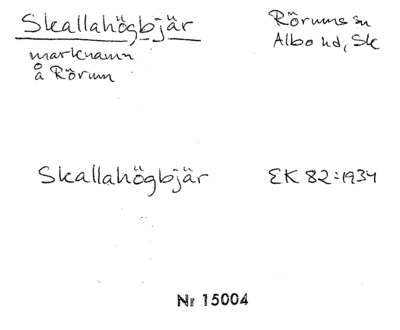 Skallahögbjär
Rörums sn
Albo hd, Sk
marknamn
å Rörum
Skallahögbjär
EK 82:1934
Nr 15004